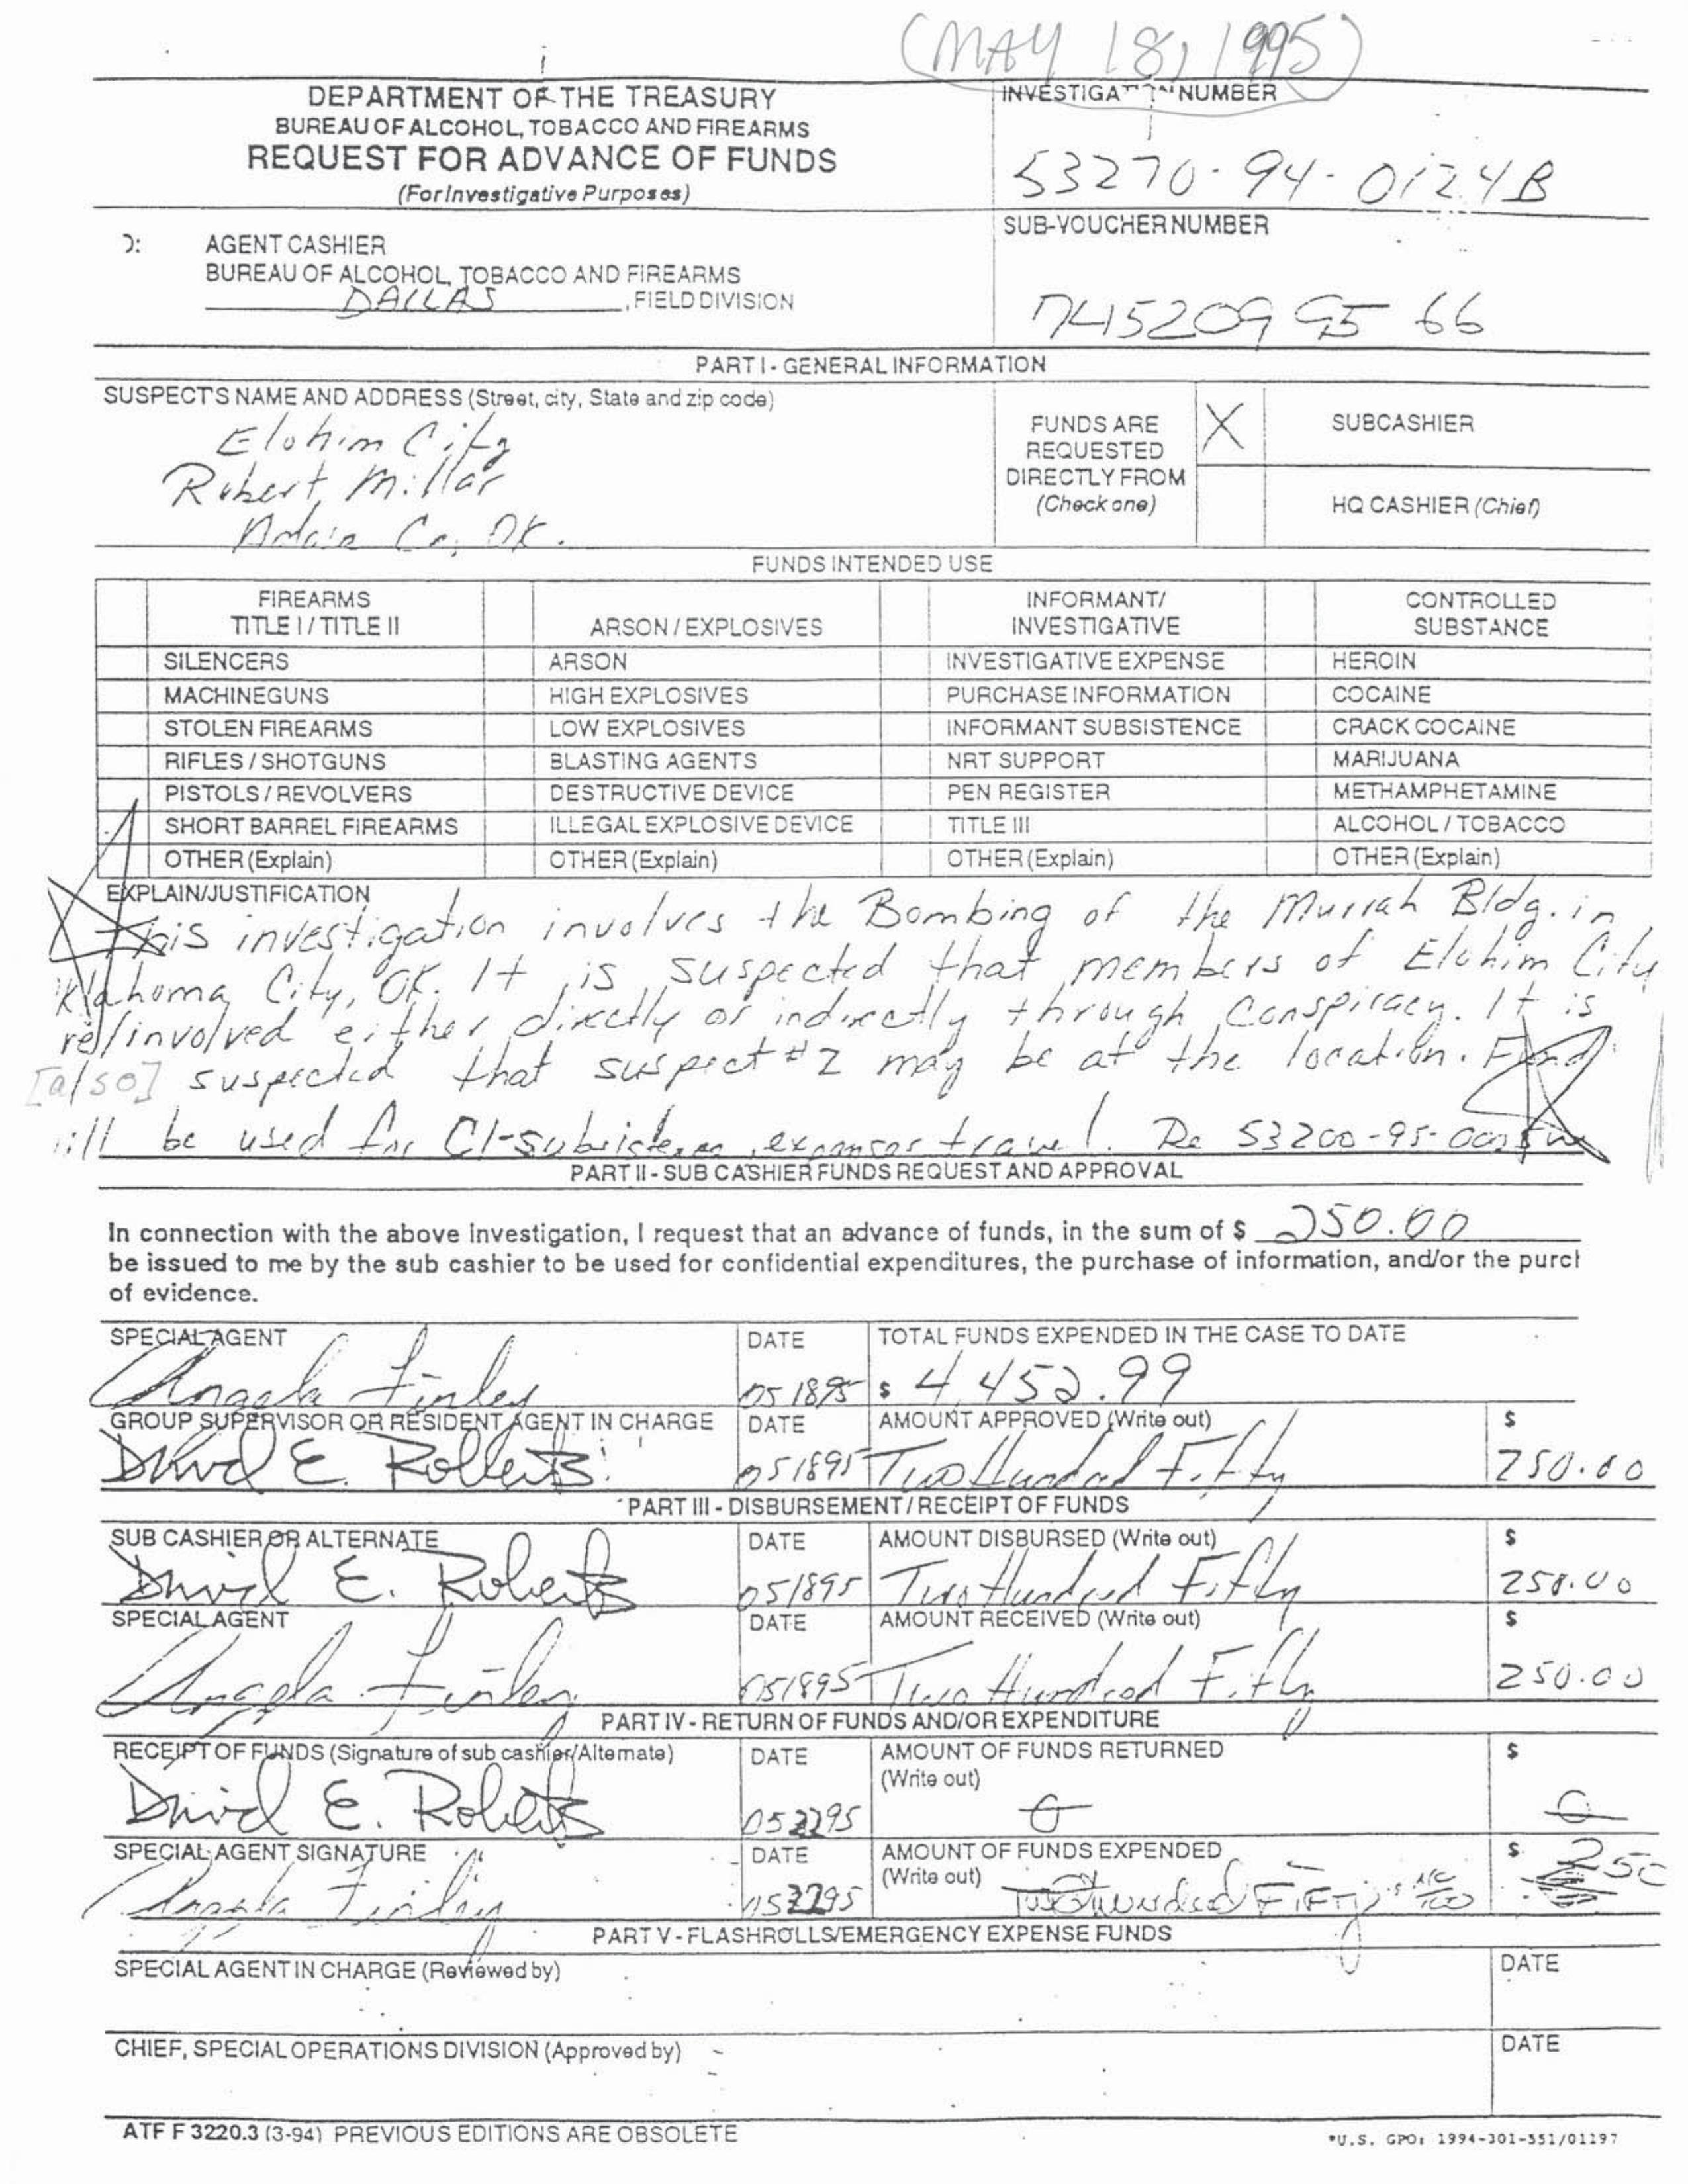 (MAY 18, 1995)
DEPARTMENT OF THE TREASURY
BUREAU OF ALCOHOL, TOBACCO AND FIREARMS
REQUEST FOR ADVANCE OF FUNDS
(For Investigative Purposes)
INVESTIGATION NUMBER
53270-94-0124B
SUB-VOUCHER NUMBER
745209 95 66
AGENT CASHIER
BUREAU OF ALCOHOL, TOBACCO AND FIREARMS
DALLAS , FIELD DIVISION
PART I - GENERAL INFORMATION
SUSPECT'S NAME AND ADDRESS (Street, city, State and zip code)
Elohim City
Robert Millar
Adair Co, OK.
FUNDS ARE
REQUESTED
DIRECTLY FROM
(Check one)
X SUBCASHIER
HQ CASHIER (Chief)
FUNDS INTENDED USE
FIREARMS TITLE I / TITLE II ARSON / EXPLOSIVES INFORMANT/ INVESTIGATIVE CONTROLLED SUBSTANCE
SILENCERS ARSON INVESTIGATIVE EXPENSE HEROIN
MACHINEGUNS HIGH EXPLOSIVES PURCHASE INFORMATION COCAINE
STOLEN FIREARMS LOW EXPLOSIVES INFORMANT SUBSISTENCE CRACK COCAINE
RIFLES / SHOTGUNS BLASTING AGENTS NRT SUPPORT MARIJUANA
PISTOLS / REVOLVERS DESTRUCTIVE DEVICE PEN REGISTER METHAMPHETAMINE
SHORT BARREL FIREARMS ILLEGAL EXPLOSIVE DEVICE TITLE III ALCOHOL / TOBACCO
OTHER (Explain) OTHER (Explain) OTHER (Explain) OTHER (Explain)
EXPLAIN/JUSTIFICATION
This investigation involves the Bombing of the Murrah Bldg. in
klahoma City, OK. It is suspected that members of Elohim City
re involved either directly or indirectly through conspiracy. It is
[also] suspected that suspect #2 may be at the location. Fund
ill be used for CI-subsistence, expenses travel. Re 53200-95-
PART II - SUB CASHIER FUNDS REQUEST AND APPROVAL
In connection with the above investigation, I request that an advance of funds, in the sum of $ 250.00
be issued to me by the sub cashier to be used for confidential expenditures, the purchase of information, and/or the purch
of evidence.
SPECIAL AGENT DATE TOTAL FUNDS EXPENDED IN THE CASE TO DATE
Angela Finley 051895 $ 4,452.99
GROUP SUPERVISOR OR RESIDENT AGENT IN CHARGE DATE AMOUNT APPROVED (Write out) $
David E. Roberts 051895 Two Hundred Fifty 250.00
PART III - DISBURSEMENT / RECEIPT OF FUNDS
SUB CASHIER OR ALTERNATE DATE AMOUNT DISBURSED (Write out) $
David E. Roberts 051895 Two Hundred Fifty 250.00
SPECIAL AGENT DATE AMOUNT RECEIVED (Write out) $
Angela Finley 051895 Two Hundred Fifty 250.00
PART IV - RETURN OF FUNDS AND/OR EXPENDITURE
RECEIPT OF FUNDS (Signature of sub cashier/Alternate) DATE AMOUNT OF FUNDS RETURNED (Write out) $
David E. Roberts 052295 0 0
SPECIAL AGENT SIGNATURE DATE AMOUNT OF FUNDS EXPENDED (Write out) $
Angela Finley 052295 Two Hundred FIFTY 250
PART V - FLASHROLLS/EMERGENCY EXPENSE FUNDS
SPECIAL AGENT IN CHARGE (Reviewed by) DATE
CHIEF, SPECIAL OPERATIONS DIVISION (Approved by) DATE
ATF F 3220.3 (3-94) PREVIOUS EDITIONS ARE OBSOLETE
*U.S. GPO: 1994-301-551/01197